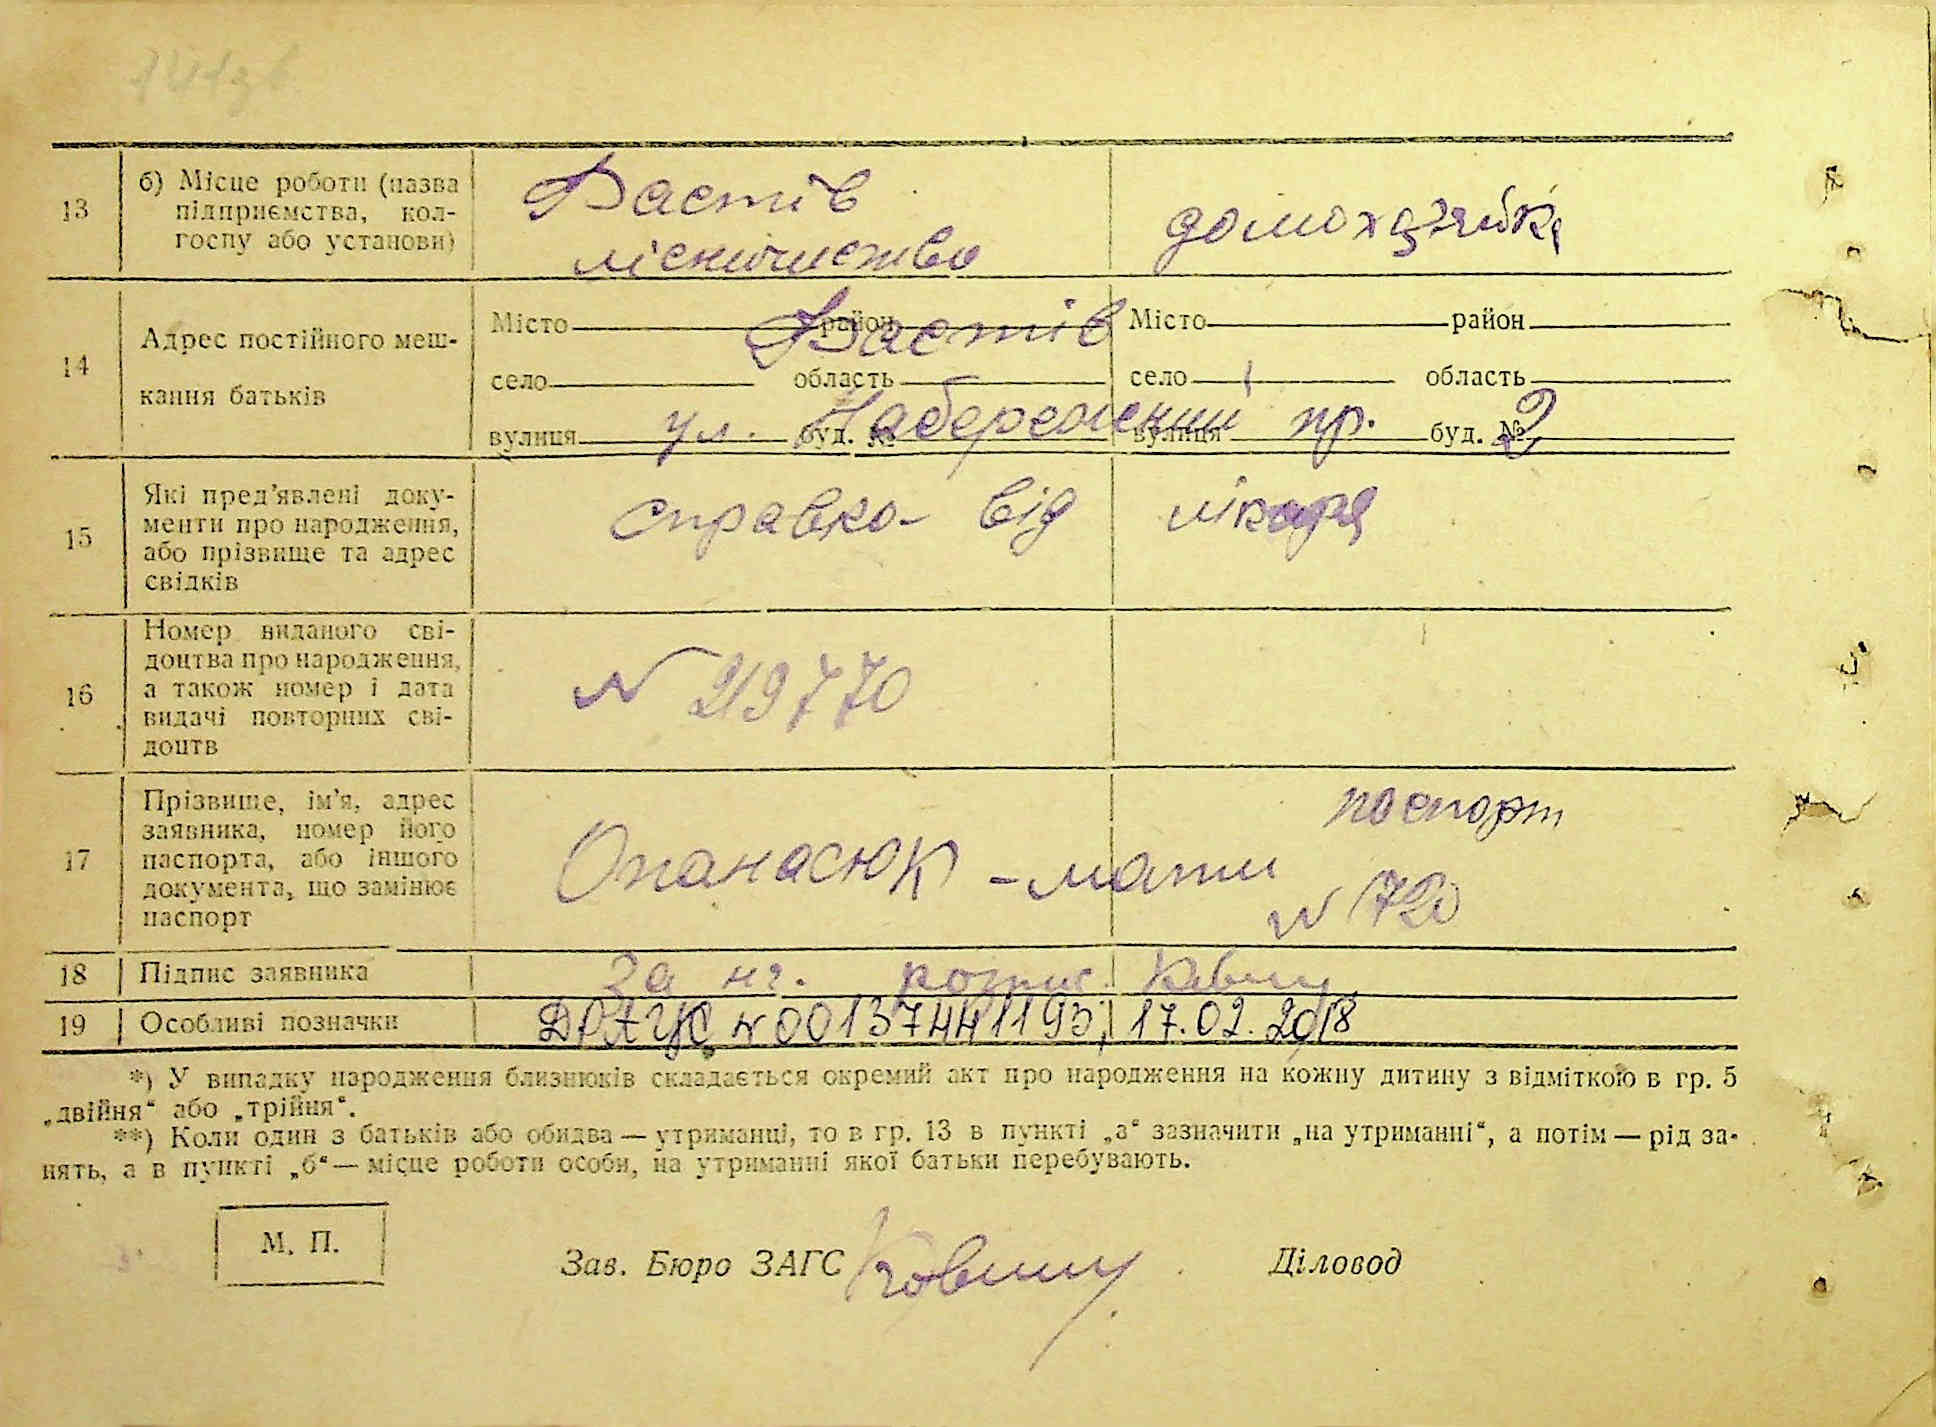 141зв
13
б) Місце роботи (назва
підприємства, кол-
госпу або установи)
Фастів
лісництво
домохазяйка
14
Адрес постійного меш-
кання батьків
Місто район Місто район
Фастів
село область село область
вулиця буд. № вулиця буд. №
ул. Набережний пр. 2
15
Які пред’явлені доку-
менти про народження,
або прізвище та адрес
свідків
справка від лікаря
16
Номер виданого сві-
доцтва про народження,
а також номер і дата
видачі повторних сві-
доцтв
N 219770
17
Прізвище, ім’я, адрес
заявника, номер його
паспорта, або іншого
документа, що замінює
паспорт
паспорт
Опанасюк - мати
N 720
18 Підпис заявника
за нг. розпис.
19 Особливі позначки
ДРАЦС, N 00137441193; 17.02.2018
*) У випадку народження близнюків складається окремий акт про народження на кожну дитину з відміткою в гр. 5
„двійня“ або „трійня“.
**) Коли один з батьків або обидва — утриманці, то в гр. 13 в пункті „а“ зазначити „на утриманні“, а потім — рід за-
нять, а в пункті „б“ — місце роботи особи, на утриманні якої батьки перебувають.
М. П.
Зав. Бюро ЗАГС
Діловод